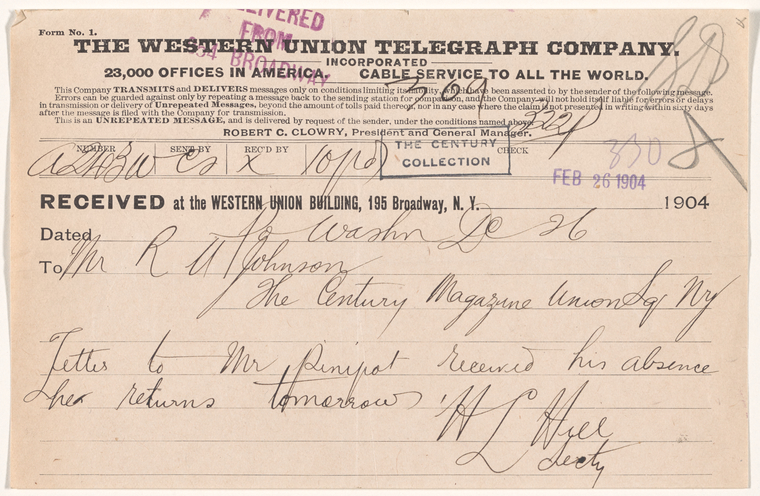 Form No. 1.
DELIVERED
FROM
BROADWAY
THE WESTERN UNION TELEGRAPH COMPANY.
INCORPORATED
23,000 OFFICES IN AMERICA. CABLE SERVICE TO ALL THE WORLD.
This Company TRANSMITS and DELIVERS messages only on conditions limiting its liability, which have been assented to by the sender of the following message.
Errors can be guarded against only by repeating a message back to the sending station for comparison, and the Company will not hold itself liable for errors or delays
in transmission or delivery of Unrepeated Messages, beyond the amount of tolls paid thereon, nor in any case where the claim is not presented in writing within sixty days
after the message is filed with the Company for transmission.
This is an UNREPEATED MESSAGE, and is delivered by request of the sender, under the conditions named above.
ROBERT C. CLOWRY, President and General Manager.
NUMBER SENT BY REC'D BY CHECK
THE CENTURY
COLLECTION
830
FEB 26 1904
RECEIVED at the WESTERN UNION BUILDING, 195 Broadway, N. Y. 1904
Dated Washn Dc 26
To Mr R U Johnson
The Century Magazine Union Sq Ny
Letter to Mr received his absence
returns tomorrow
H L Hill
Secty